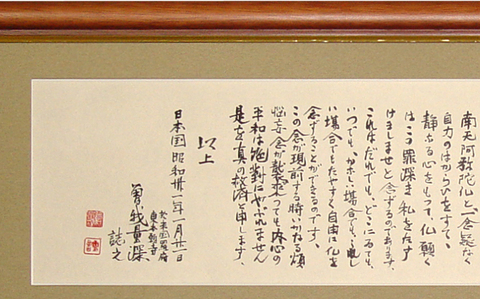 南无阿弥陀仏と一念疑なく
自力のはからひをすてゝ
静かなる心をもつて、仏願く
はこの罪深き私をたす
けましませと念ずるのであります。
これはだれでも、どこにゐても、
いつでも、かホど
い場合でもたやすく自由に仏を
念ずることができるのです、
この念が現前する時、いかなる煩
悩妄念が襲来つても内心の
平和は絶対にやぶれません
是を真の救済と申します、
以上
日本国昭和卅一年一月廿一日
曽我量深
誌之